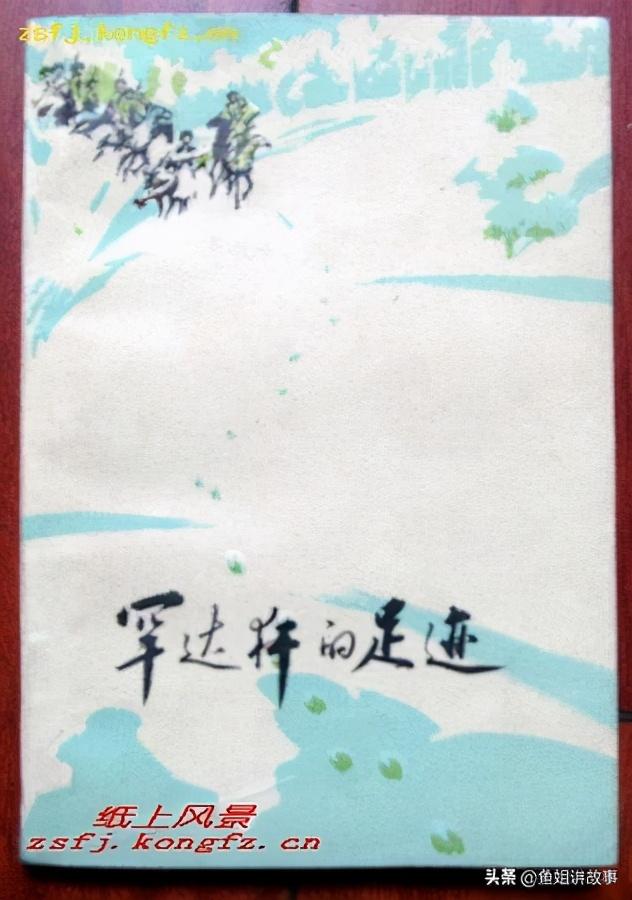 zsfj.kongfz.cn
罕达犴的足迹
纸上风景
zsfj.kongfz.cn
头条 @鱼姐讲故事